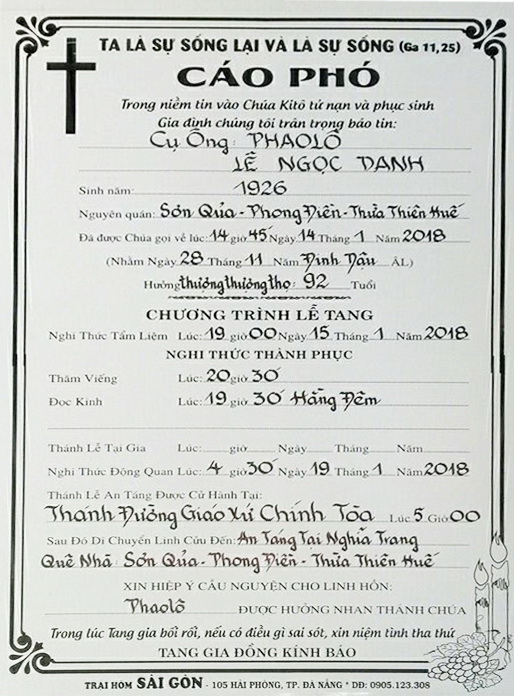 TA LÀ SỰ SỐNG LẠI VÀ LÀ SỰ SỐNG (Ga 11,25)
CÁO PHÓ
Trong niềm tin vào Chúa Kitô tử nạn và phục sinh
Gia định chúng tôi trân trọng báo tin:
Cụ Ông: PHAOLÔ
LÊ NGỌC DANH
Sinh năm: 1926
Nguyên quán: Sơn Qủa - Phong Điền - Thừa Thiên Huế
Đã được Chúa gọi về lúc: 14 giờ 45 Ngày 14 Tháng 1 Năm 2018
(Nhằm Ngày 28 Tháng 11 Năm Đinh Dậu ÂL)
Hưởng thượng thượng thọ: 92 Tuổi
CHƯƠNG TRÌNH LỄ TANG
Nghi Thức Tẩm Liệm Lúc: 19 giờ 00 Ngày 15 Tháng 1 Năm 2018
NGHI THỨC THÀNH PHỤC
Thăm Viếng Lúc: 20 giờ 30
Đọc Kinh Lúc: 19 giờ 30 Hằng Đêm
Thánh Lễ Tại Gia Lúc: giờ Ngày Tháng Năm
Nghi Thức Động Quan Lúc: 4 giờ 30 Ngày 19 Tháng 1 Năm 2018
Thánh Lễ An Táng Được Cử Hành Tại:
Thánh Đường Giáo Xứ Chính Tòa Lúc 5 Giờ 00
Sau Đó Di Chuyển Linh Cữu Đến: An Táng Tại Nghĩa Trang
Quê Nhà: Sơn Qủa - Phong Điền - Thừa Thiên Huế
XIN HIỆP Ý CẦU NGUYỆN CHO LINH HỒN:
Phaolô ĐƯỢC HƯỞNG NHAN THÁNH CHÚA
Trong lúc Tang gia bối rối, nếu có điều gì sai sót, xin niệm tình tha thứ
TANG GIA ĐỒNG KÍNH BÁO
TRẠI HÒM SÀI GÒN - 105 HẢI PHÒNG, TP. ĐÀ NẴNG * DĐ: 0905.123.308